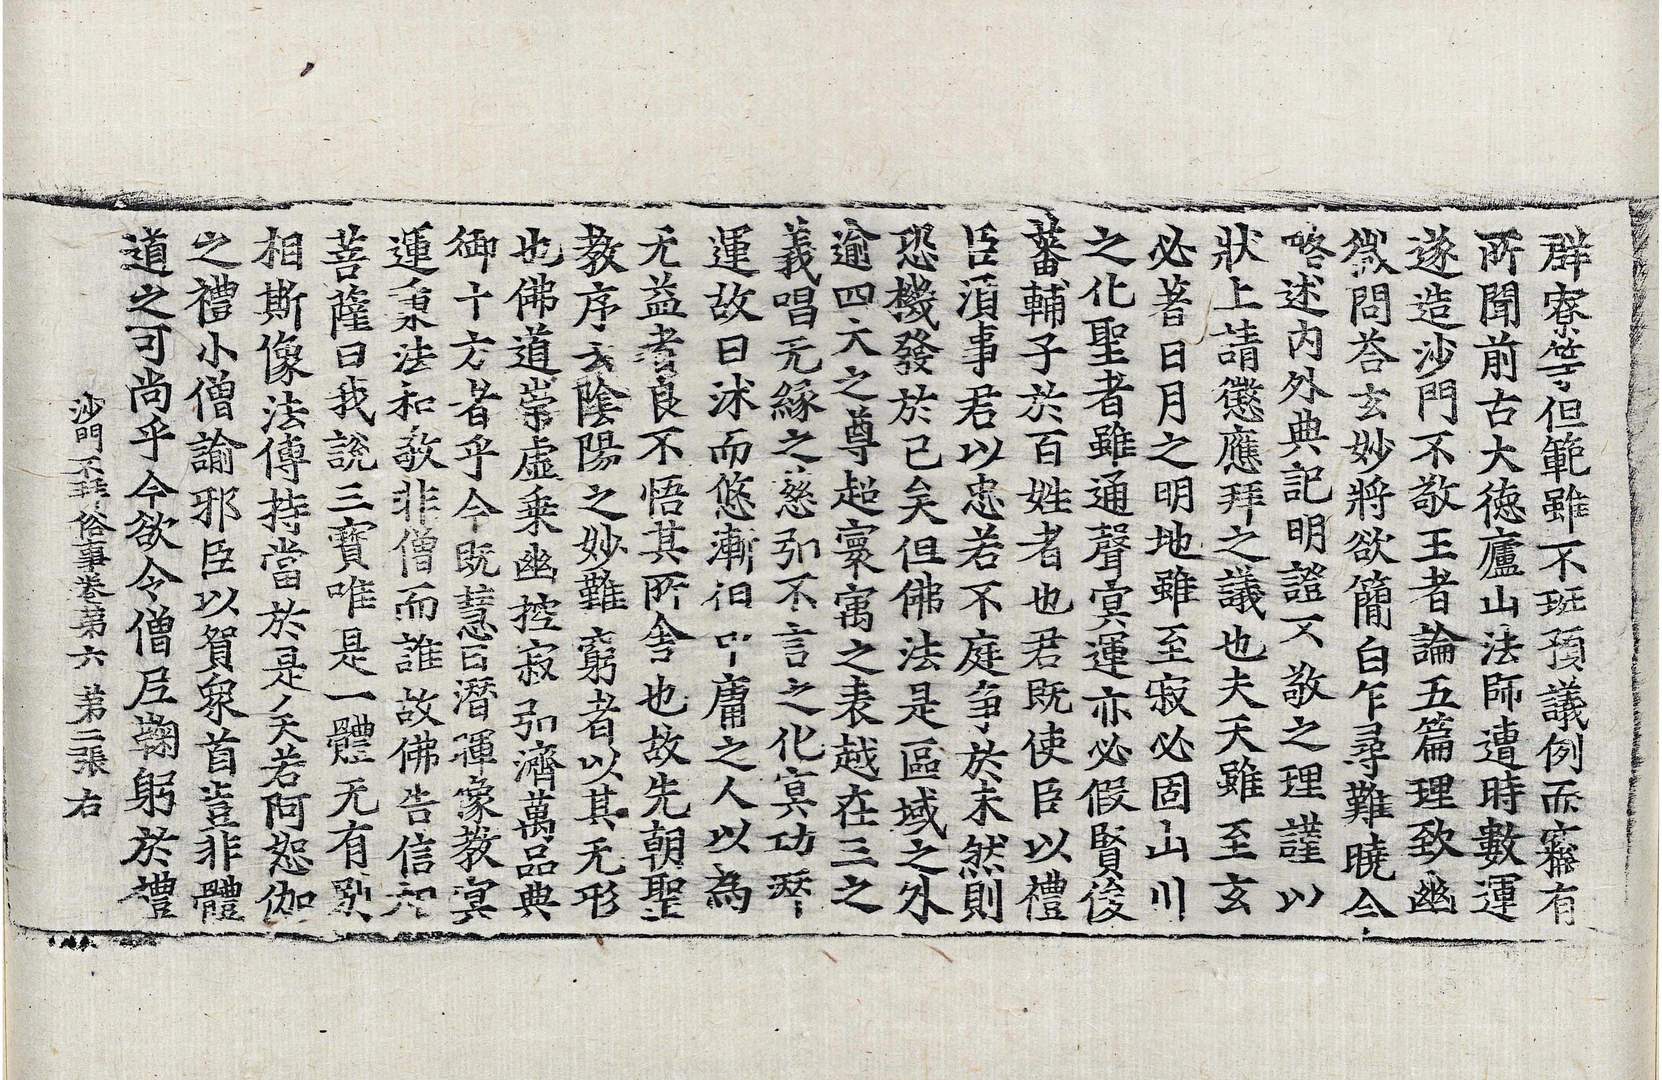 群寮等但範雖不班預議例而竊有
所聞前古大德廬山法師遭時數運
遂造沙門不敬王者論五篇理致幽
微問荅玄妙將欲簡白乍尋難曉今
略述内外典記明證不敬之理謹以
狀上請懲應拜之議也夫天雖至玄
必著日月之明地雖至寂必固山川
之化聖者雖通聲冥運亦必假賢俊
蕃輔子於百姓者也君旣使臣以禮
臣湏事君以忠若不庭争於未然則
恐機發於己矣但佛法是區域之外
逾四大之尊超寰寓之表越在三之
義唱无緣之慈引不言之化冥功
運故曰沭而悠漸汩中庸之人以為
无益者良不悟其所舍也故先朝聖
教序云陰陽之妙難窮者以其无形
也佛道崇虛乗幽控寂引濟萬品典
御十方者乎今旣慧日潛暉象教冥
運秉法和敬非僧而誰故佛告信相
菩薩曰我說三寶唯是一體无有別
相斯像法傳持當於是人矣若阿恕伽
之禮小僧諭邪臣以賀衆首豈非體
道之可尚乎今欲令僧尼鞠躬於禮
沙門不拜俗事卷第六 第二張 右